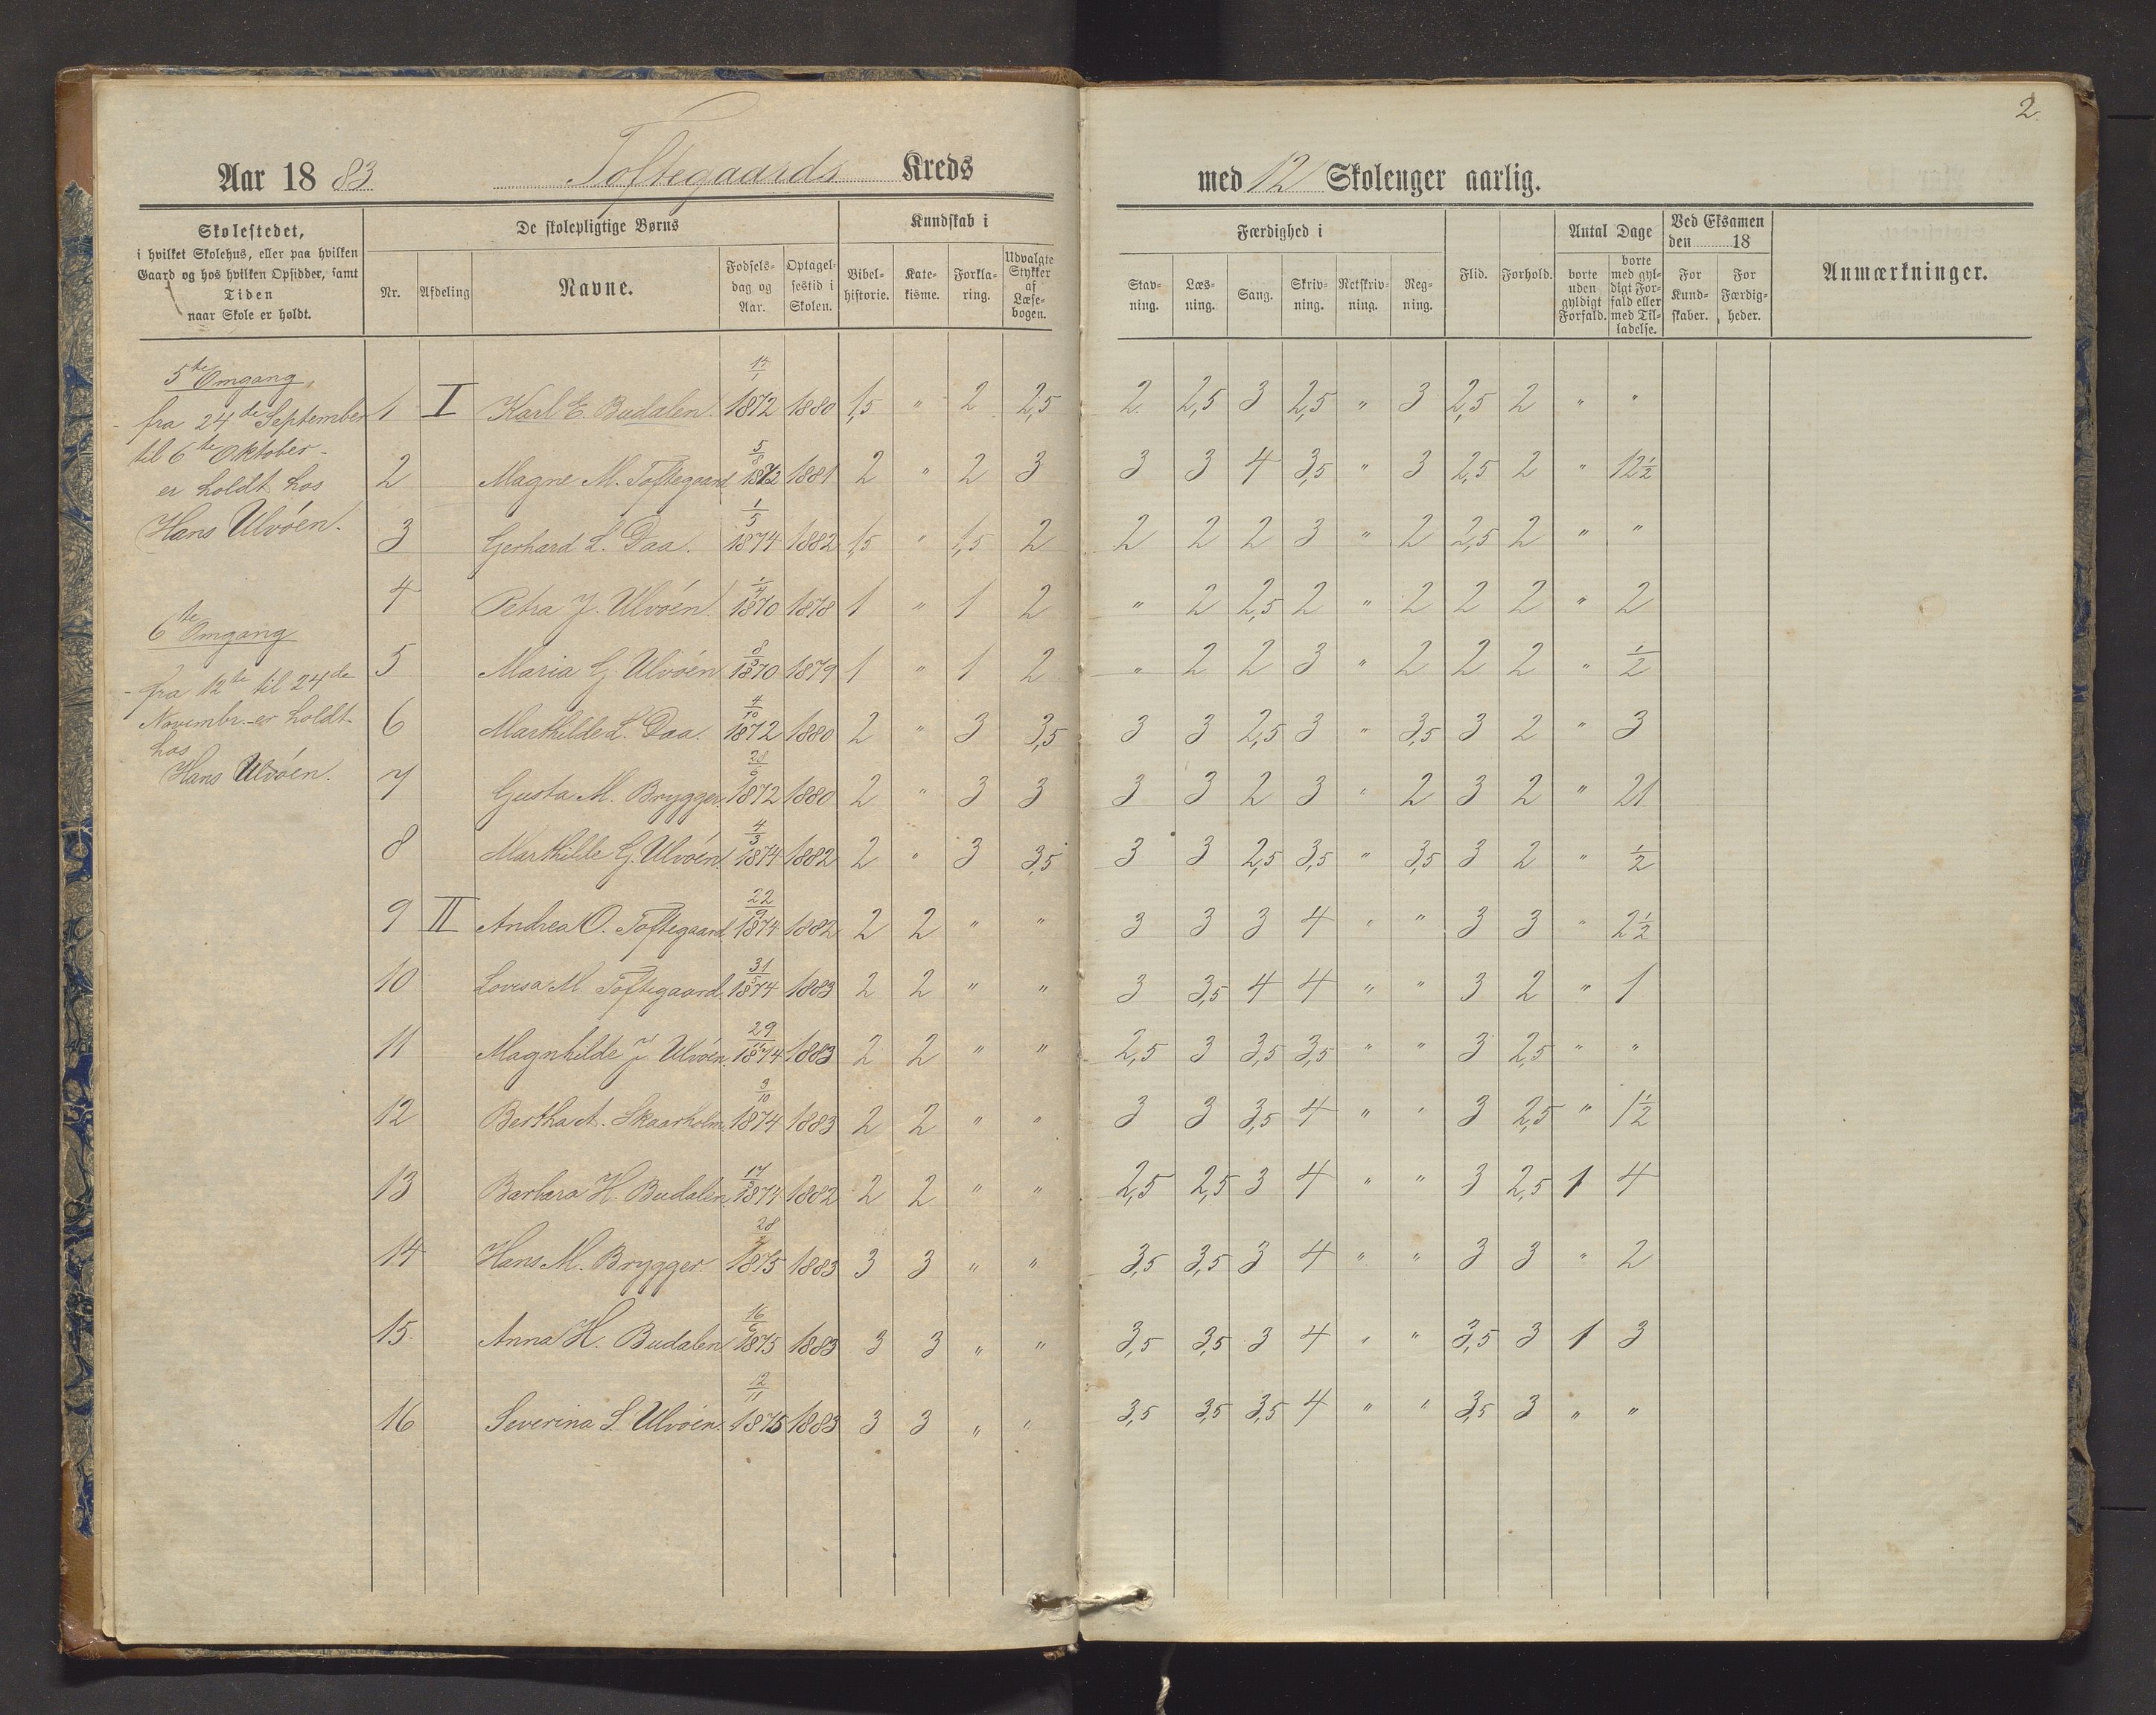 2
Aar 1883 Toftegaards Kreds med 12 Skoleuger aarlig.
Skolestedet,
i hvilket Skolehus, eller paa hvilken
Gaard og hos hvilken Opsidder, samt
Tiden
naar Skole er holdt.
De skolepligtige Børns
Nr. Afdeling Navne. Fødselsdag og Aar. Optagelsestid i Skolen.
Kundskab i
Bibelhistorie. Katekisme. Forklaring. Udvalgte Stykker af Læsebogen.
Færdighed i
Stavning. Læsning. Sang. Skrivning. Retskrivning. Regning.
Flid. Forhold.
Antal Dage
borte uden gyldigt Forfald. borte med gyldigt Forfald eller med Tilladelse.
Ved Eksamen
den 18
For Kundskaber. For Færdigheder.
Anmærkninger.
5te Omgang
fra 24de September
til 6te Oktober
er holdt hos
Hans Ulvøen.
6te Omgang
fra 12te til 24de
Novembr. er holdt
hos
Hans Ulvøen.
1 I Karl E. Budalen. 14/1 1872 1880 1,5 " 2 2,5 2 2,5 3 2,5 " 3 2,5 2 " "
2 Magne M. Toftegaard 5/8 1872 1881 2 " 2 3 3 3 4 3,5 " 3 2,5 2 " 12½
3 Gerhard L. Daa. 1/5 1874 1882 1,5 " 1,5 2 2 2 2 3 " 2 2,5 2 " "
4 Petra J. Ulvøen 1870 1878 1 " 1 2 " 2 2,5 2 " 2 2 2 " 2
5 Maria G. Ulvøen 1870 1879 1 " 1 2 " 2 2 3 " 2 2 2 " ½
6 Marthilde L. Daa. 4/10 1872 1880 2 " 3 3,5 3 3 2,5 3 " 3,5 3 2 " 3
7 Gusta M. Brygger 1872 1880 2 " 3 3 3 3 2 3 " 2 3 2 " 21
8 Marthilde G. Ulvøen 4/3 1874 1882 2 " 3 3,5 3 3 2,5 3,5 " 3,5 3 2 " ½
9 II Andrea O. Toftegaard 22/9 1874 1882 2 2 " " 3 3 3 4 " " 3 3 " 2½
10 Lovisa M. Toftegaard 31/5 1874 1883 2 2 " " 3 3,5 4 4 " " 3 2 " 1
11 Magnhilde J. Ulvøen 1874 1883 2 2 " " 2,5 3 3,5 3,5 " " 3 2,5 " "
12 Bertha A. Skaarholm 3/10 1874 1883 2 2 " " 3 3 3,5 4 " " 3 2,5 " 1½
13 Barbara H. Budalen 1874 1882 2 2 " " 2,5 2,5 3 4 " " 3 2,5 1 4
14 Hans M. Brygger. 1875 1883 3 3 " " 3,5 3,5 3 4 " " 3 3 " 2
15. Anna H. Budalen 16/6 1875 1883 3 3 " " 3,5 3,5 3 4 " " 3,5 3 1 3
16 Severina S. Ulvøen. 12/11 1875 1883 3 3 " " 3,5 3,5 3,5 4 " " 3,5 3 " "